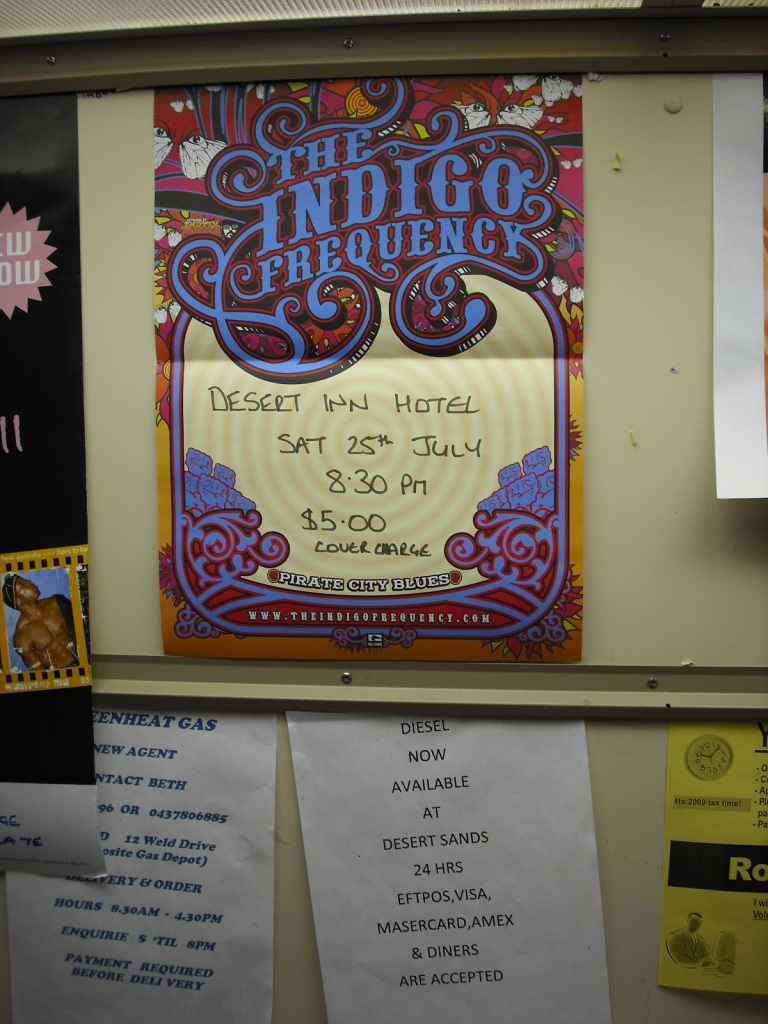 THE
INDIGO
FREQUENCY
DESERT INN HOTEL
SAT 25th JULY
8.30 PM
$5.00
COVER CHARGE
PIRATE CITY BLUES
WWW.THEINDIGOFREQUENCY.COM
EW
OW
beat australia >>> born to be
03
GE
ATE
EENHEAT GAS
NEW AGENT
NTACT BETH
96 OR 0437806885
D 12 Weld Drive
osite Gas Depot)
DELIVERY & ORDER
HOURS 8.30AM - 4.30PM
ENQUIRIE S 'TIL 8PM
PAYMENT REQUIRED
BEFORE DELI VERY
DIESEL
NOW
AVAILABLE
AT
DESERT SANDS
24 HRS
EFTPOS,VISA,
MASERCARD,AMEX
& DINERS
ARE ACCEPTED
Its 2009 tax time!
Ro
I wi
Volu